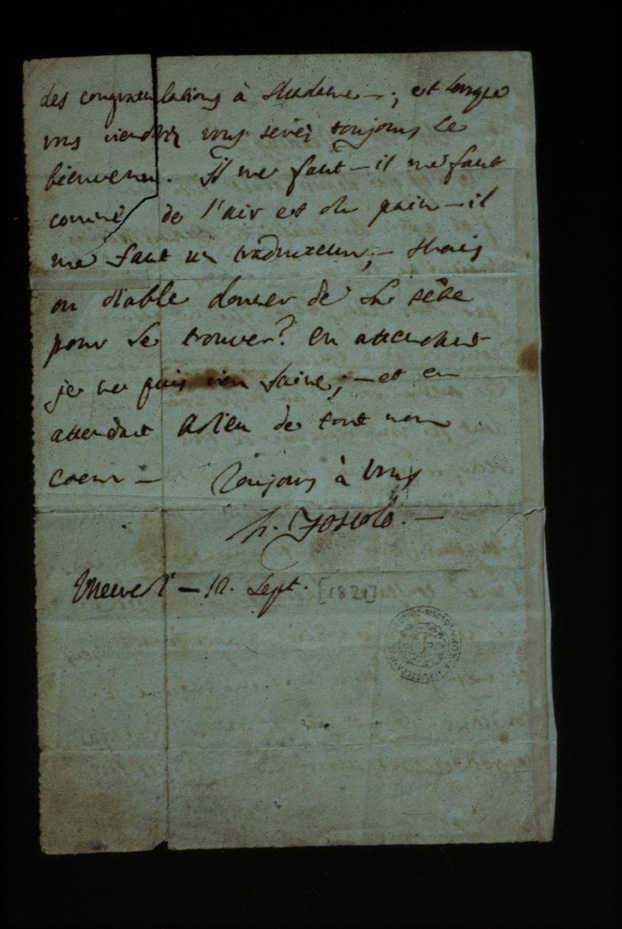 des congratulations à Madame —; et lorsque
vous viendrez vous serez toujours le
bienvenu. Il me faut — il me faut
comme de l'air et du pain — il
me faut un traducteur; — Mais
ou diable donner de la tête
pour le trouver? En attendant
je ne puis rien faire; — et en
attendant Adieu de tout mon
Coeur —
Toujours à Vous
Foscolo. —
Mercredi — 12. Sept. [1821]